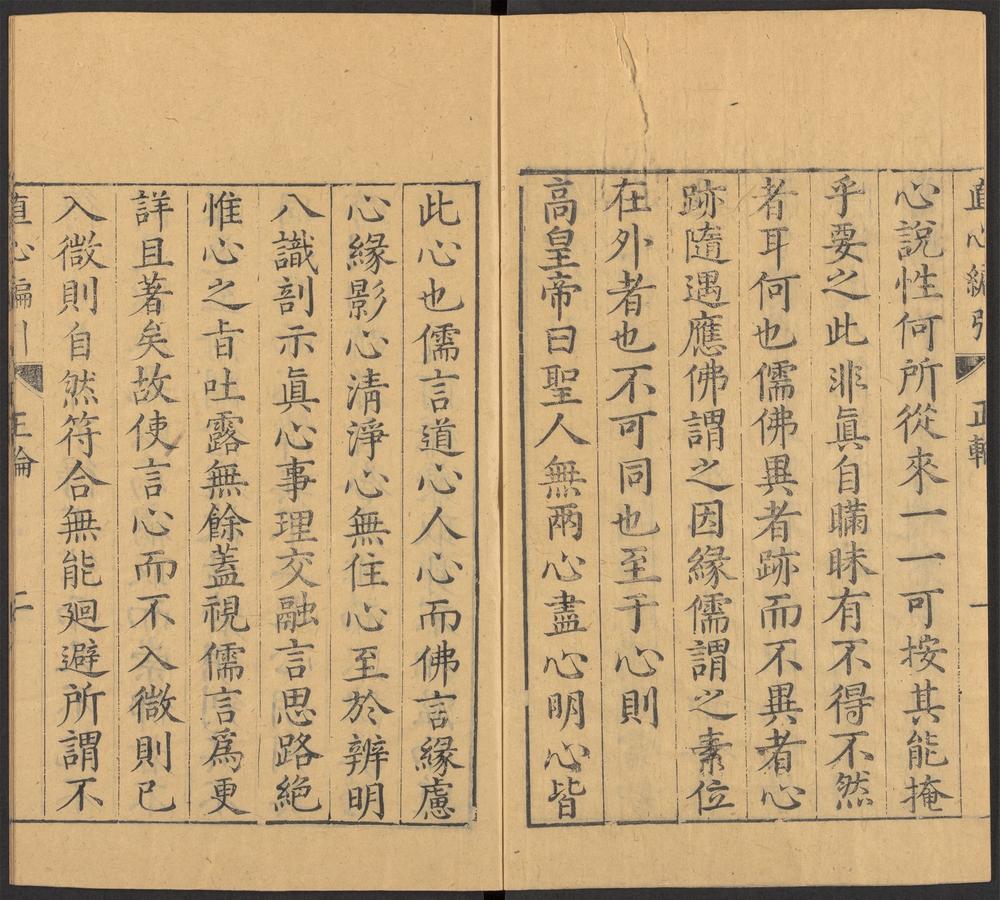 直心編引 正輪 一
心說性何所從來一一可按其能掩
乎要之此非眞自瞞昧有不得不然
者耳何也儒佛異者跡而不異者心
跡隨遇應佛謂之因緣儒謂之素位
在外者也不可同也至于心則
高皇帝曰聖人無兩心盡心明心皆
此心也儒言道心人心而佛言緣慮
心緣影心清淨心無住心至於辨明
八識剖示眞心事理交融言思路絕
惟心之旨吐露無餘蓋視儒言爲更
詳且著矣故使言心而不入微則已
入微則自然符合無能廻避所謂不
直心編引 正輪